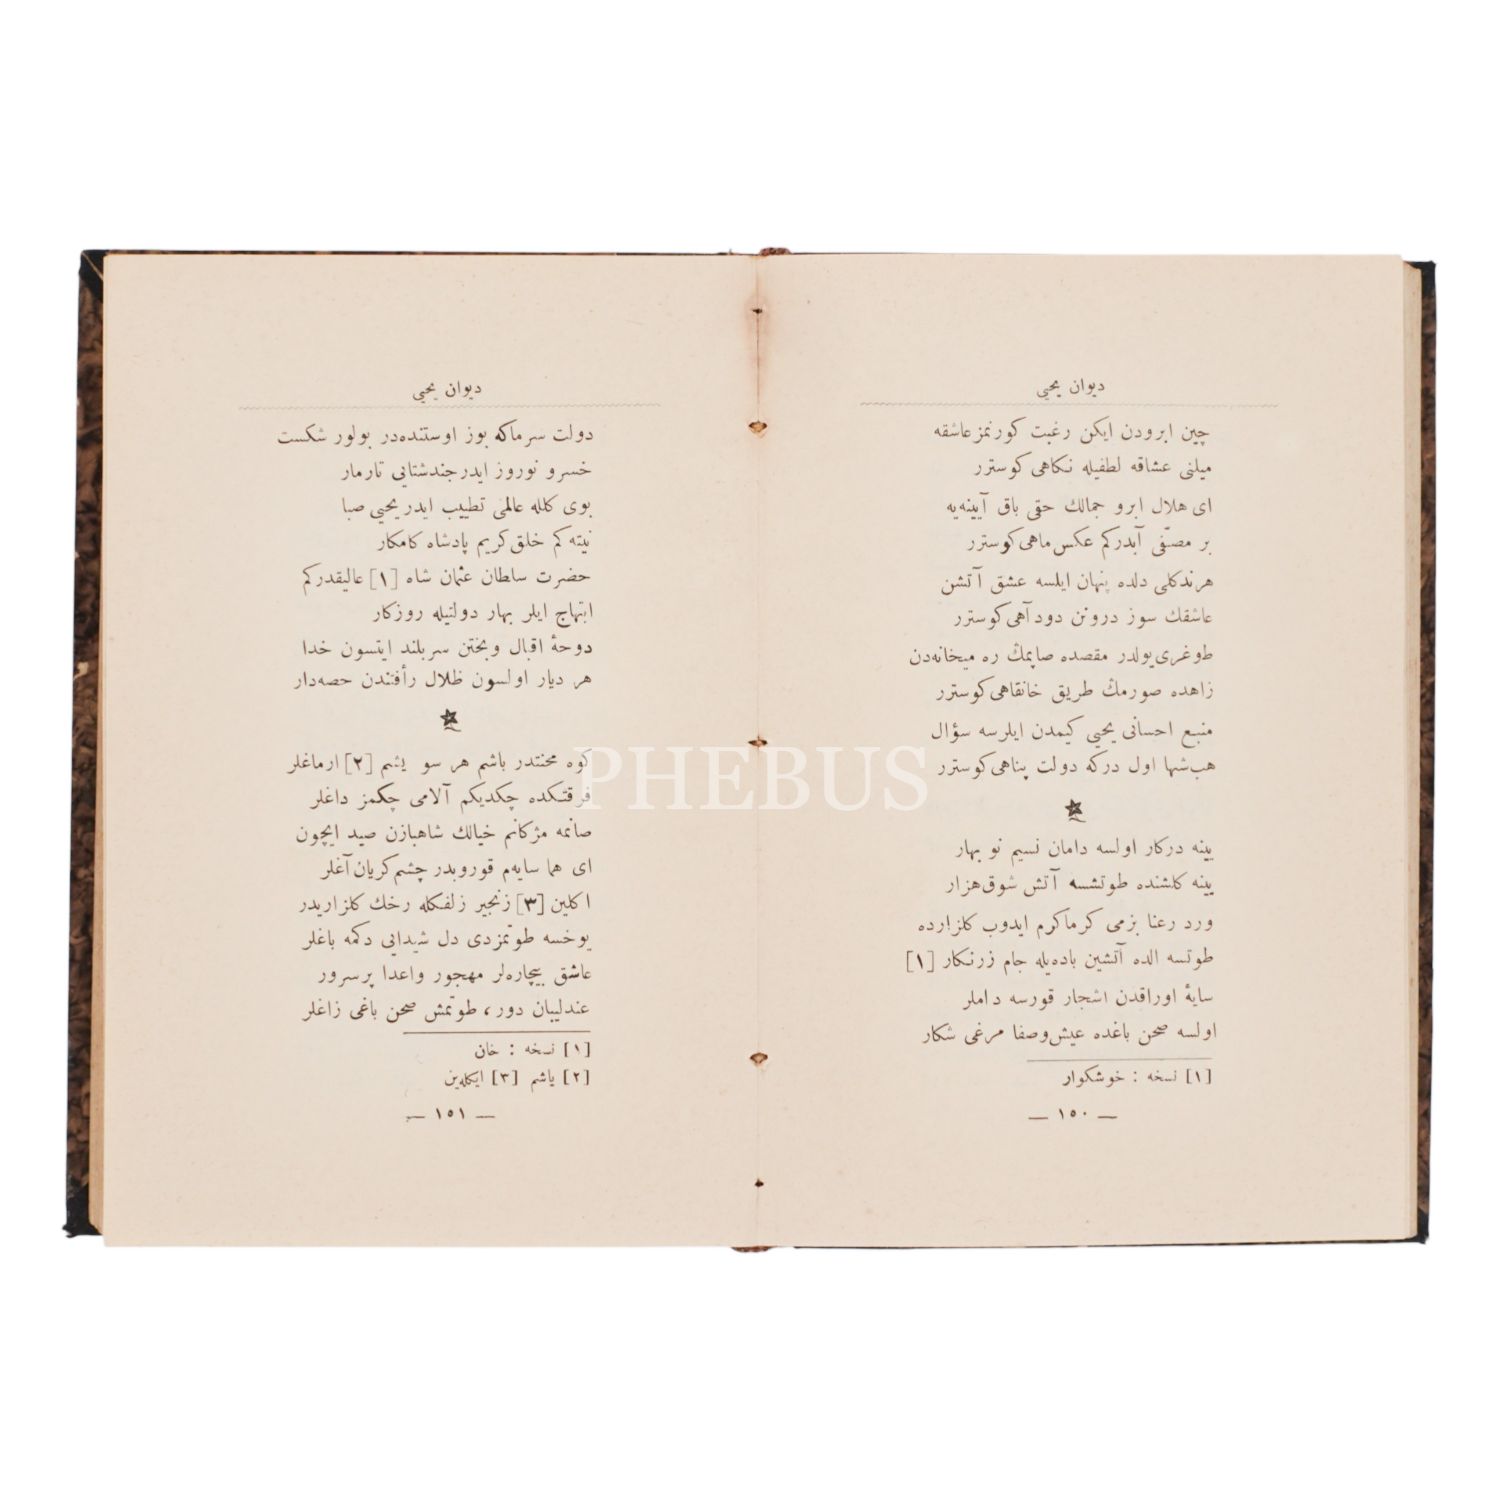 ديوان يحيى
چين ابرودن ايكن رغبت كورنمز عاشقه
ميلنى عشاقه لطفيله نكاهى كوسترر
اى هلال ابرو جمالك حقى باق آيينه‌يه
بر مصفّى آبدركم عكس ماهى كوسترر
هرندكلى دلده پنهان ايلسه عشق آتشن
عاشقك سوز درونن دود آهى كوسترر
طوغرى يولدر مقصده صاپمك ره ميخانه‌دن
زاهده صورمك طريق خانقاهى كوسترر
منبع احسانى يحيى كيمدن ايلرسه سؤال
هب شها اول دركه دولت پناهى كوسترر
يينه دركار اولسه دامان نسيم نو بهار
يينه كلشنده طوتشسه آتش شوق هزار
ورد رعنا بزمى كرماكرم ايدوب كلزارده
طوتسه الده آتشين باده‌يله جام زرنكار [١]
سايۀ اوراقدن اشجار قورسه داملر
اولسه صحن باغده عيش وصفا مرغى شكار
[١] نسخه : خوشكوار
— ١٥٠ —
ديوان يحيى
دولت سرماكه بوز اوستنده‌در بولور شكست
خسرو نوروز ايدر جندشتايى تارمار
بوى كلله عالمى تطييب ايدر يحيى صبا
نيته كم خلق كريم پادشاه كامكار
حضرت سلطان عثمان شاه [١] عاليقدركم
ابتهاج ايلر بهار دولتيله روزكار
دوحۀ اقبال وبختن سربلند ايتسون خدا
هر ديار اولسون ظلال رأفتندن حصه‌دار
كوه محنتدر باشم هر سو يشم [٢] ارماغلر
فرقتكده چكديكم آلامى چكمز داغلر
صانمه مژكانم خيالك شاهبازن صيد ايچون
اى هما سايه‌م قوروبدر چشم كريان آغلر
اكلين [٣] زنجير زلفكله رخك كلزاريدر
يوخسه طوتمزدى دل شيدايى دكمه باغلر
عاشق بيچاره‌لر مهجور واعدا پرسرور
عندليبان دور، طوتمش صحن باغى زاغلر
[١] نسخه : خان
[٢] ياشم [٣] ايكله‌ين
— ١٥١ —
PHEBUS